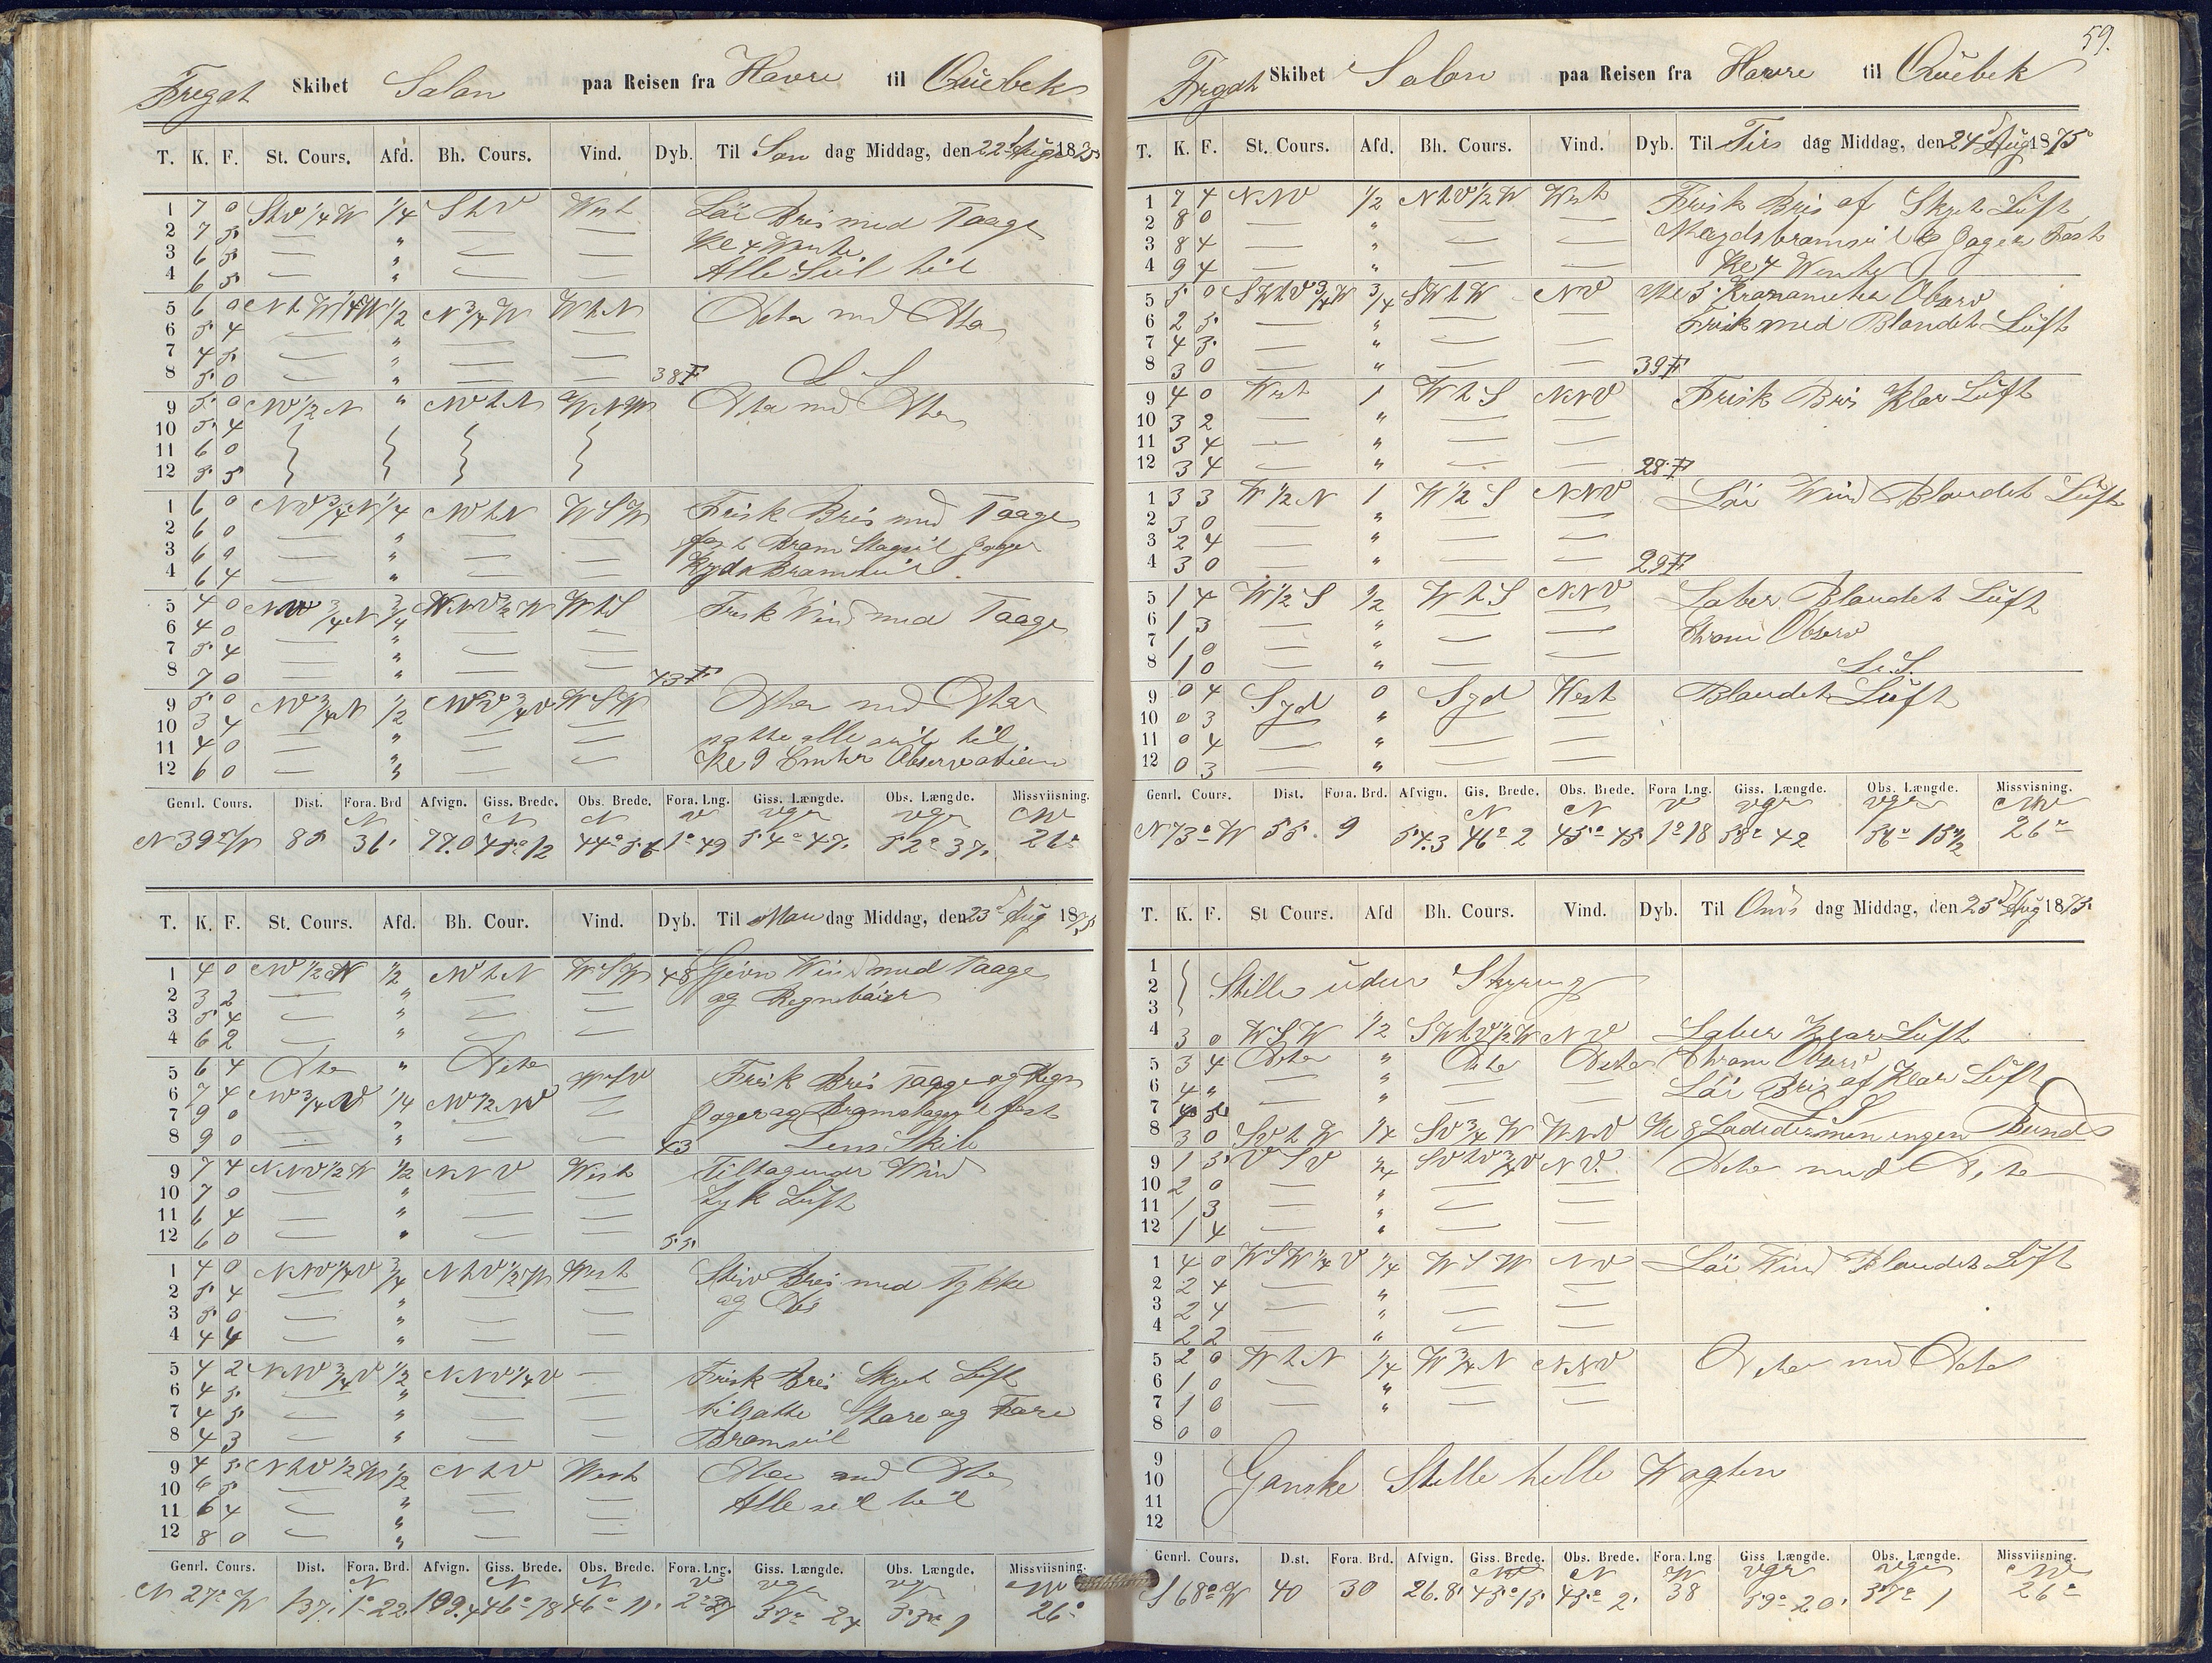 Fregat Skibet Salon paa Reisen fra Havre til Quebek
T. K. F. St. Cours. Afd. Bh. Cours. Vind. Dyb. Til Søn dag Middag, den 22 Aug 1875
1 7 0 StV 1/4 W 1/4 S t V West Lai Bris med Taage
2 7 5 — " — — Kl 4 Vente
3 6 5 — " — —
4 6 5 — " — — Alle Seil til
5 6 0 N t W 1/4 W 1/2 N 3/4 W W t N Dito med Dito
6 5 4 — " — —
7 4 5 — " — —
8 5 0 — " — — 38 F L S
9 5 0 NV 1/2 N " NV t N WNW Dito med Dito
10 5 4
11 6 0
12 5 5
1 6 0 NV 3/4 N 1/4 NV t N WSW Frisk Bris med Taage
2 6 0 — " — — fast Bram Stagseil Jager
3 6 2 — " — — Krydsbramseil
4 6 4 — " — —
5 4 0 NW 3/4 N 3/4 W t S Frisk Vind med Taage
6 4 0 — " — —
7 5 4 — " — —
8 7 0 — " — — 43 F
9 5 0 NV 3/4 N 1/2 WSW Dito med Dito
10 3 4 — " — —
11 4 0 — " — — satte alle seil til
12 6 0 — " — — Kl 9 Observation
Genrl. Cours. Dist. Fora. Brd Afvign. Giss. Brede. Obs. Brede. Fora. Lng. Giss. Længde. Obs. Længde. Missviisning.
N N N V vgr vgr NV
N 39° W 85 36 77.0 45° 12 44° 56 1° 49 54° 47 52° 37 26°
T. K. F. St. Cours. Afd. Bh. Cour. Vind. Dyb. Til Man dag Middag, den 23 Aug 1875
1 4 0 NV 1/2 N 1/2 NV t N WSW 48 Jævn Vind med Taage
2 3 2 — " — — og Regnbaier
3 5 4 — " — —
4 6 2 — " — —
5 6 4 Dito " Dito Frisk Bris Taage og Regn
6 7 4 NV 3/4 N 1/4 NV 1/2 — Jager og Bramstagseil fast
7 9 0 — " — —
8 9 0 — " — — 43 Lens Skib
9 7 4 NNV 1/2 W 1/2 NNV West Tiltagende Vind
10 7 0 — " — — tyk Luft
11 6 4 — " — —
12 6 0 — " — — 55
1 4 0 NNV 1/4 V 3/4 N t V 1/2 W West Stiv Bris med Tykke
2 5 4 — " — — og Dis
3 5 0 — " — —
4 4 4 — " — —
5 4 2 NNV 3/4 V 1/2 NNV 1/4 V — Frisk Bris Skyet Luft
6 4 5 — " — —
7 4 5 — " — — tilsatte Store og Fore
8 4 3 — " — — Bramseil
9 4 5 N t V 1/2 W 1/2 N t V West Dito med Dito
10 6 5 — " — — Alle seil til
11 6 4 — " — —
12 8 0 — " — —
Genrl. Cours. Dist. Fora. Brd. Afvign. Giss. Brede. Obs. Brede. Fora. Lng. Giss. Længde. Obs. Længde. Missviisning.
N N N V vgr vgr NV
N 27° W 137 1° 22 46° 18 46° 11 57° 24 26°
59.
Fregat Skibet Salon paa Reisen fra Havre til Quebek
T. K. F. St. Cours. Afd. Bh. Cours. Vind. Dyb. Til Tirs dag Middag, den 24 Aug 1875
1 7 4 NNV 1/2 N t V 1/2 W West Frisk Bris af Skyet Luft
2 8 0 — " — —
3 8 4 — " — — Krydsbramseil & Jager Fast
4 9 4 — " — — Kl 4 Vente
5 5 0 SW t V 3/4 W 3/4 SW t W NV Kl 5 Observ
6 2 5 — " — — Frisk med Blandet Luft
7 4 3 — " — —
8 3 0 — " — — 39 F
9 4 0 West 1 W t S NNV Frisk Bris Klar Luft
10 3 2 — " — —
11 3 4 — " — —
12 3 4 — " — — 28 F
1 3 3 W 1/2 N 1 W 1/2 S NNV Lai Vind Blandet Luft
2 3 0 — " — —
3 2 4 — " — —
4 3 0 — " — — 29 F
5 1 4 W 1/2 S 1/2 W t S NNV Laber Blandet Luft
6 1 3 — " — — Kronom Observ
7 1 0 — " — —
8 1 0 — " — — L. S.
9 0 4 Syd 0 Syd West Blandet Luft
10 0 3 — " — —
11 0 4 — " — —
12 0 3 — " — —
Genrl. Cours. Dist. Fora. Brd. Afvign. Gis. Brede. Obs. Brede. Fora Lng. Giss. Længde. Obs. Længde. Missvisning.
N N V vgr vgr NW
N 73° W 55. 9 54.3 46° 2 45° 45 1° 18 58° 42 56° 15 1/2 26°
T. K. F. St Cours. Afd Bh. Cours. Vind. Dyb. Til Ons dag Middag, den 25 Aug 1875
1
2 Stille uden Styring
3
4 3 0 WSW 1/2 SW t V 1/2 W NV Laber Klar Luft
5 3 4 Dito " Dito Dito Kronom Observ
6 4 " — " — — Lai Bris af Klar Luft
7 — " — — L S
8 3 0 SV t W 1/4 SV 3/4 W WNV Kl 8 Loddede men ingen Bund
9 1 5 VSV 3/4 SV t V 3/4 V NV. Dito med Dito
10 2 0 — " — —
11 1 3 — " — —
12 1 4 — " — —
1 4 0 WSW 1/4 V 1/4 WSW NV Lai Vind Blandet Luft
2 2 4 — " — —
3 2 4 — " — —
4 2 2 — " — —
5 2 0 W t N 1/4 W 3/4 N NNV Dito med Dito
6 1 0 — " — —
7 1 0 — " — —
8 0 0
9
10 Ganske Stille helle Vagten
11
12
Genrl. Cours. D.st. Fora. Brd. Afvign. Giss. Brede. Obs. Brede. Fora. Lng Giss. Længde. Obs. Længde. Missviisning.
N W vgr vgr NV
S 68° W 40 30 26.8 45° 15 45° 2. 38 59° 20 57° 1 26°